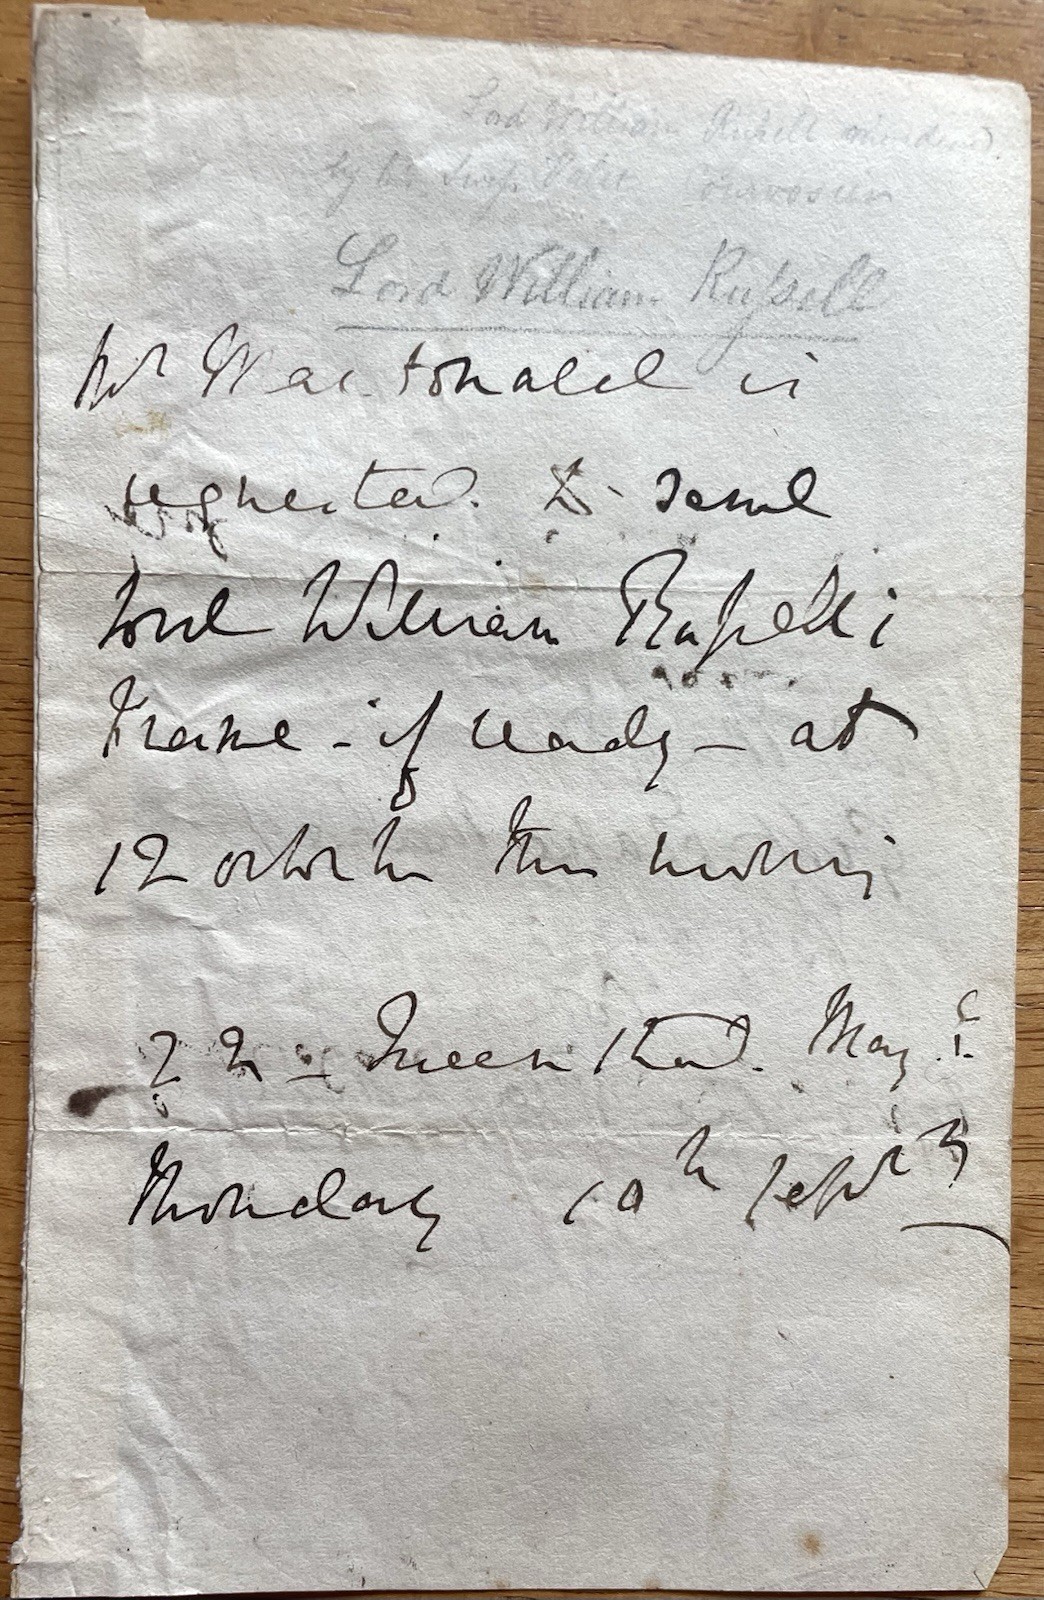 Lord William Russell murdered
by his Swiss Valet Courvosier
Lord William Russell
Mr Macdonald is
requested to send
Lord William Russell's
Frame - if ready - at
12 o'clock this morning
22 - Queen Street. May
Monday 10th Septr